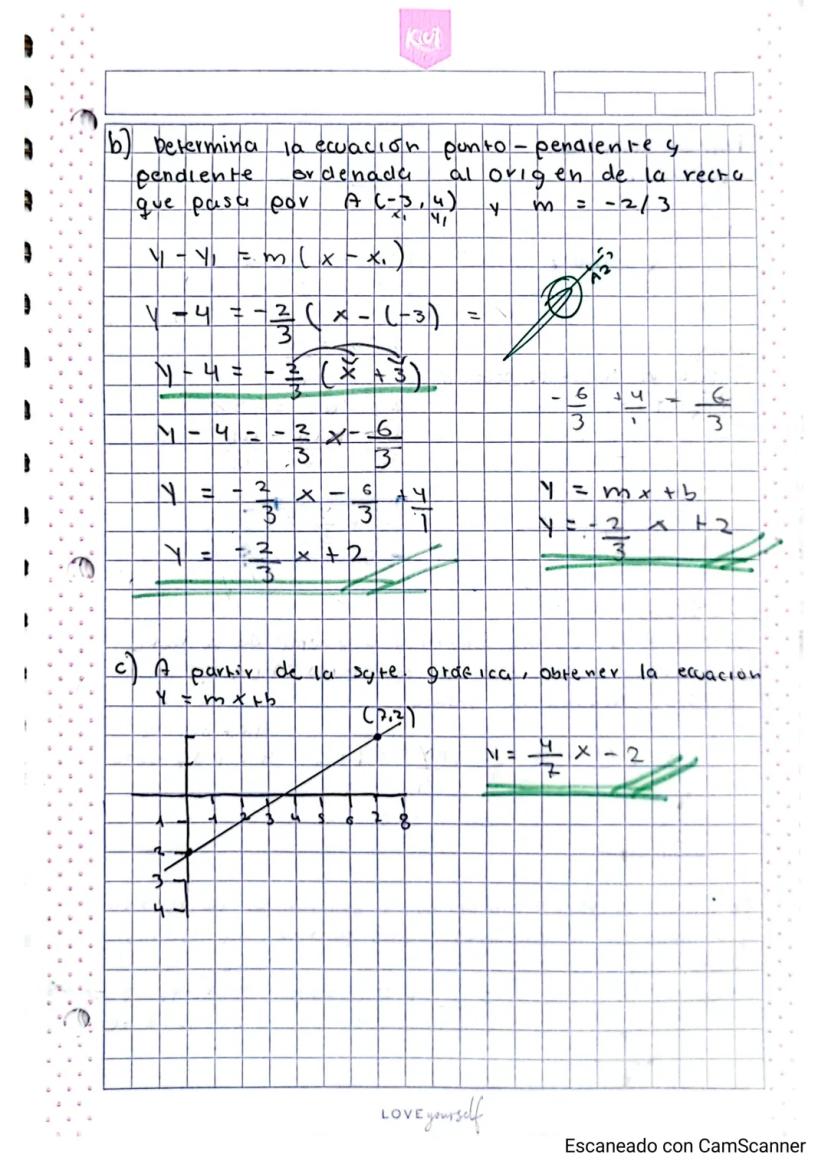 Kiut
b) Determina la ecuación punto-pendiente y
pendiente ordenada al origen de la recta
que pasa por A (-3, 4) y m = -2/3
x₁ y₁
y - y₁ = m ( x - x₁ )
y - 4 = -2/3 ( x - (-3) =
y - 4 = -2/3 ( x + 3 )
y - 4 = -2/3 x - 6/3
-6/3 + 4/1 = 6/3
y = -2/3 x - 6/3 + 4/1
y = -2/3 x + 2
y = mx + b
y = -2/3 x + 2
c) A partir de la sgte. gráfica, obtener la ecuación
y = mx + b
(7,2)
y = 4/7 x - 2
1 2 3 4 5 6 7 8
1
2
3
4
LOVE yourself
Escaneado con CamScanner